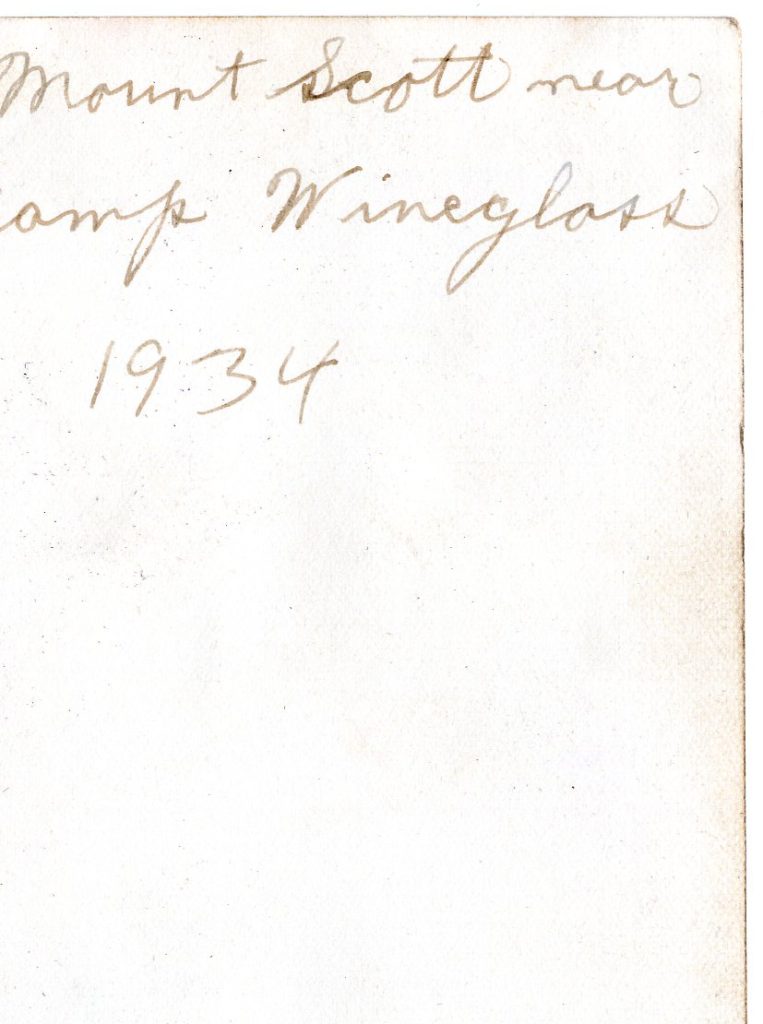 Mount Scott near
Camp Wineglass
1934